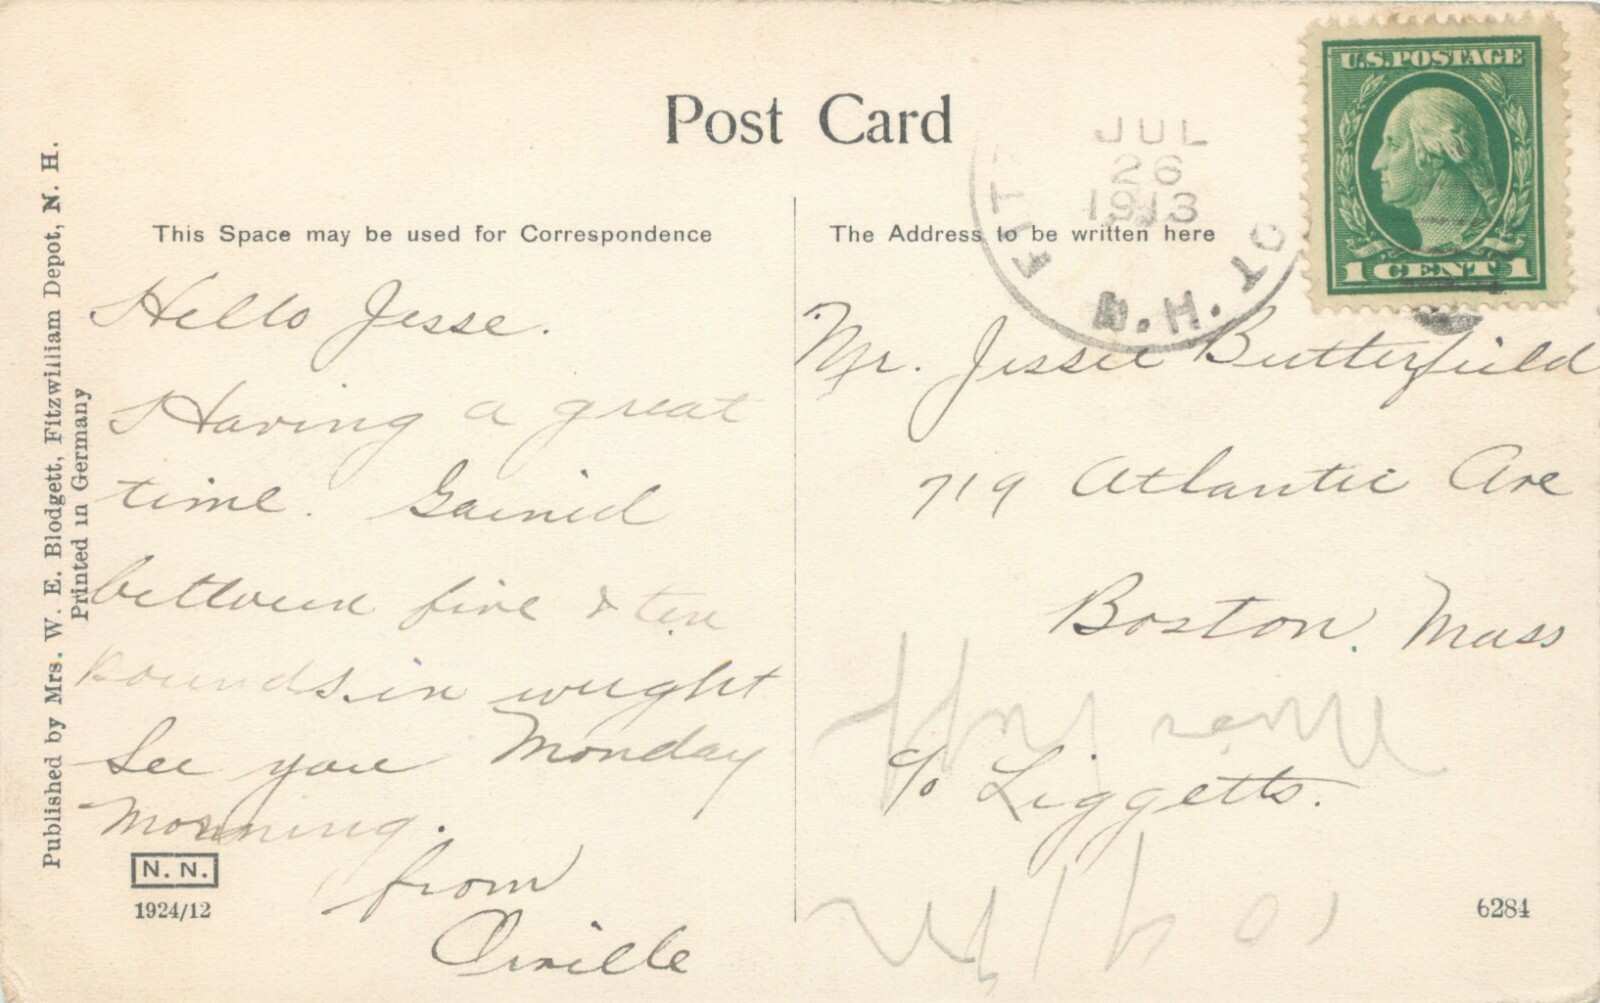 Post Card
U.S. POSTAGE
1 CENT 1
JUL
26
1913
N.H.
This Space may be used for Correspondence
The Address to be written here
Published by Mrs. W. E. Blodgett, Fitzwilliam Depot, N. H.
Printed in Germany
Hello Jesse.
Having a great
time. Gained
between five & ten
pounds in weight
See you Monday
Morning.
from
Orville
Mr. Jesse Butterfield
719 Atlantic Ave
Boston, Mass
c/o Liggetts.
N. N.
1924/12
6284